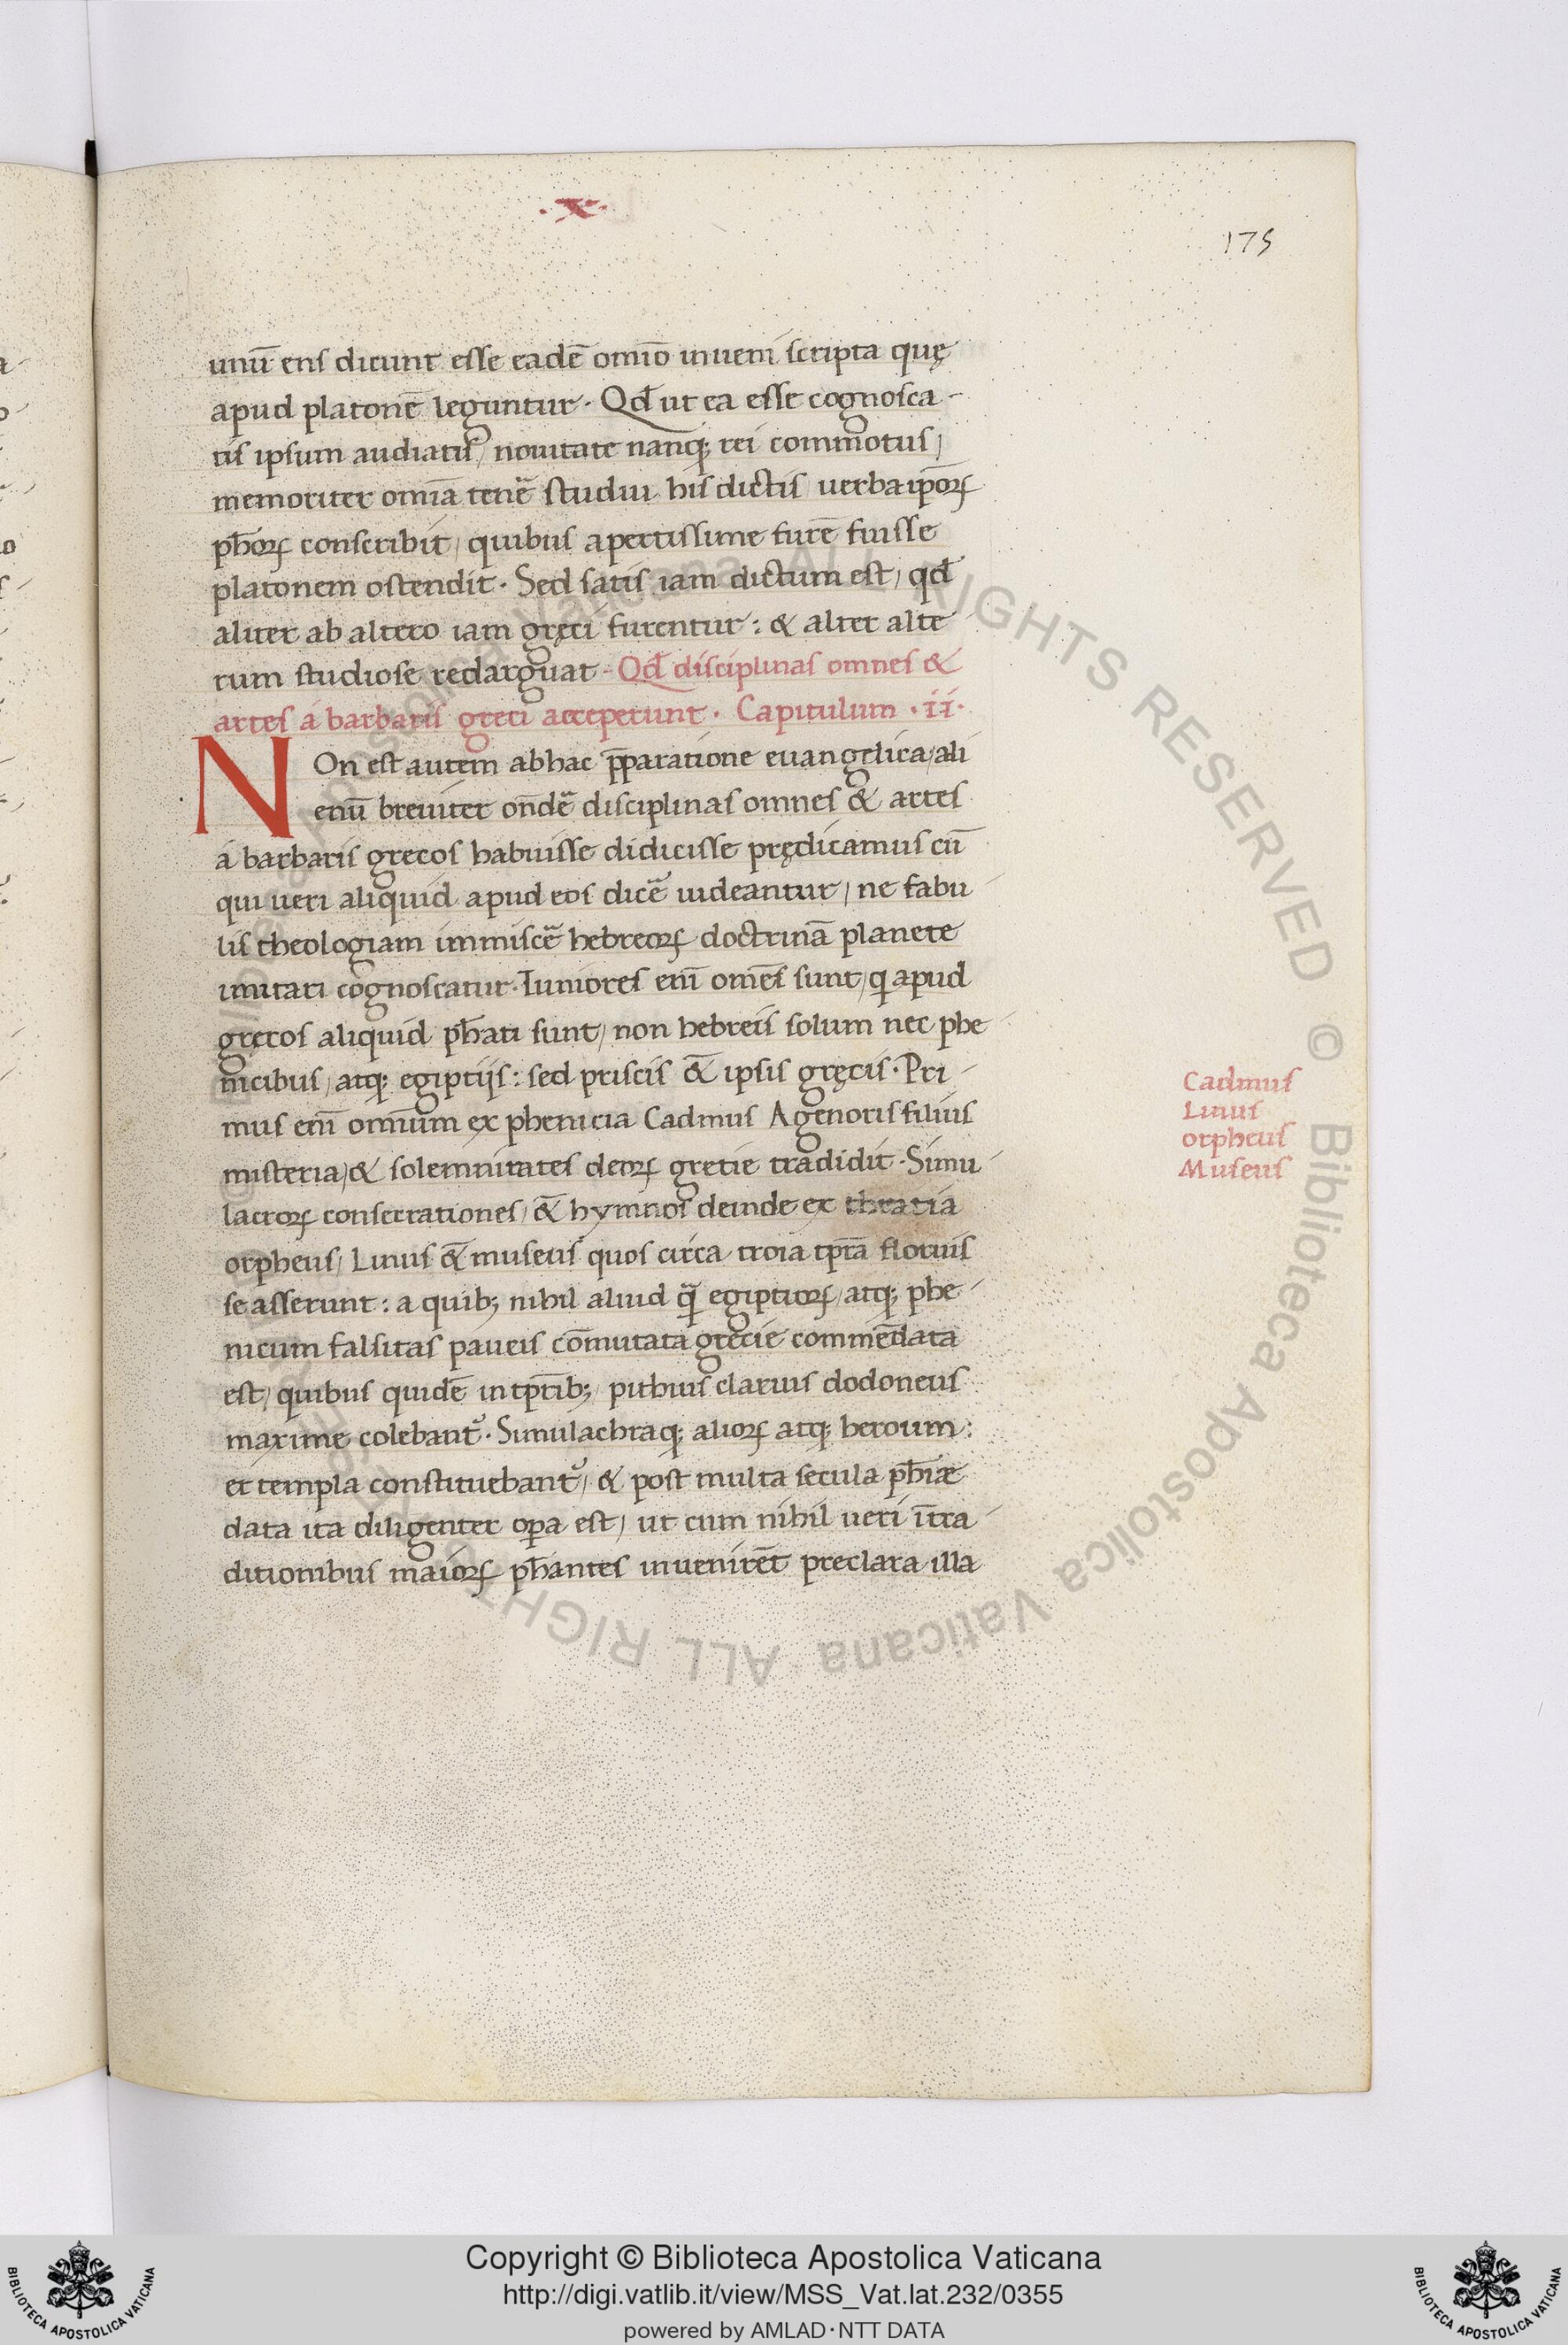 ·x·
175
unū ens dicunt esse eadē omīo inueni scripta quę
apud platonē leguntur · Qd̄ ut ea esse cognosca-
tis ipsum audiatis / nouitate nanq; rei commotus /
memoriter omīa tenē studui his dictis / uerba ip̄oꝝ
ph̄oꝝ conscribit / quibus apertissime furē fuisse
platonem ostendit · Sed satis iam dictum est / qd̄
aliter ab altero iam gręci furentur : & alter alte
rum studiose redarguat - Qd̄ disciplinas omnes &
artes á barbaris greci acceperunt · Capitulum · ii ·
NOn est autem ab hac p̄paratione euangelica / ali
enū breuiter on̄dē disciplinas omnes & artes
á barbaris grecos habuisse didicisse prędicamus cū
qui ueri aliquid apud eos dicē uideantur / ne fabu
lis theologiam immiscē hebreoꝝ doctrinā planete
imitari cognoscatur · Iuniores em̄ omēs sunt / qi apud
gręcos aliquid ph̄ati sunt / non hebreis solum nec phe
nicibus / atq; egiptijs : sed priscis & ipsis gręcis · Pri
mus em̄ omīum ex phenicia Cadmus Agenoris filius
misteria / & solemnitates deoꝝ gretie tradidit · Simu
lacroꝝ consecrationes / & hymnos deinde ex thratia
orpheus / Linus & museus quos circa troia tp̄rā floruis
se asserunt : a quib; nihil aliud q̄ egiptioꝝ / atq; phe
nicum falsitas paucis cōmutata grecie commēdata
est / quibus quidē in tp̄rib; / pithius clarius dodoneus
maxime colebant᷑ · Simulachraq; alioꝝ atq; heroum :
et templa constituebant᷑ / & post multa secula ph̄iæ
data ita diligenter oꝑa est / ut cum nihil ueri ītra
ditionibus maioꝝ ph̄antes inuenirēt preclara illa
Cadmus
Linus
orpheus
Museus
© Biblioteca Apostolica Vaticana ALL RIGHTS RESERVED
Copyright © Biblioteca Apostolica Vaticana
http://digi.vatlib.it/view/MSS_Vat.lat.232/0355
powered by AMLAD·NTT DATA
BIBLIOTECA APOSTOLICA VATICANA
BIBLIOTECA APOSTOLICA VATICANA